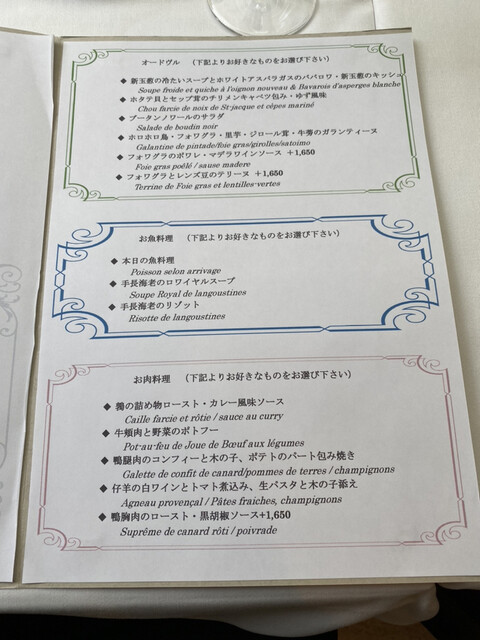 オードヴル　（下記よりお好きなものをお選び下さい）
◆ 新玉葱の冷たいスープとホワイトアスパラガスのババロワ・新玉葱のキッシュ
Soupe froide et quiche à l'oignon nouveau & Bavarois d'asperges blanche
◆ ホタテ貝とセップ茸のチリメンキャベツ包み・ゆず風味
Chou farcie de noix de St-jacque et cépes mariné
◆ ブータンノワールのサラダ
Salade de boudin noir
◆ ホロホロ鳥・フォワグラ・里芋・ジロール茸・牛蒡のガランティーヌ
Galantine de pintade/foie gras/girolles/satoimo
◆ フォワグラのポワレ・マデラワインソース +1,650
Foie gras poêlé / sause madere
◆ フォワグラとレンズ豆のテリーヌ +1,650
Terrine de Foie gras et lentilles-vertes
お魚料理　（下記よりお好きなものをお選び下さい）
◆ 本日の魚料理
Poisson selon arrivage
◆ 手長海老のロワイヤルスープ
Soupe Royal de langoustines
◆ 手長海老のリゾット
Risotte de langoustines
お肉料理　（下記よりお好きなものをお選び下さい）
◆ 鶉の詰め物ロースト・カレー風味ソース
Caille farcie et rôtie / sauce au curry
◆ 牛頬肉と野菜のポトフー
Pot-au-feu de Joue de Bœuf aux légumes
◆ 鴨腿肉のコンフィーと木の子、ポテトのパート包み焼き
Galette de confit de canard/pommes de terres / champignons
◆ 仔羊の白ワインとトマト煮込み、生パスタと木の子添え
Agneau provençal / Pâtes fraiches, champignons
◆ 鴨胸肉のロースト・黒胡椒ソース+1,650
Supréme de canard rôti / poivrade